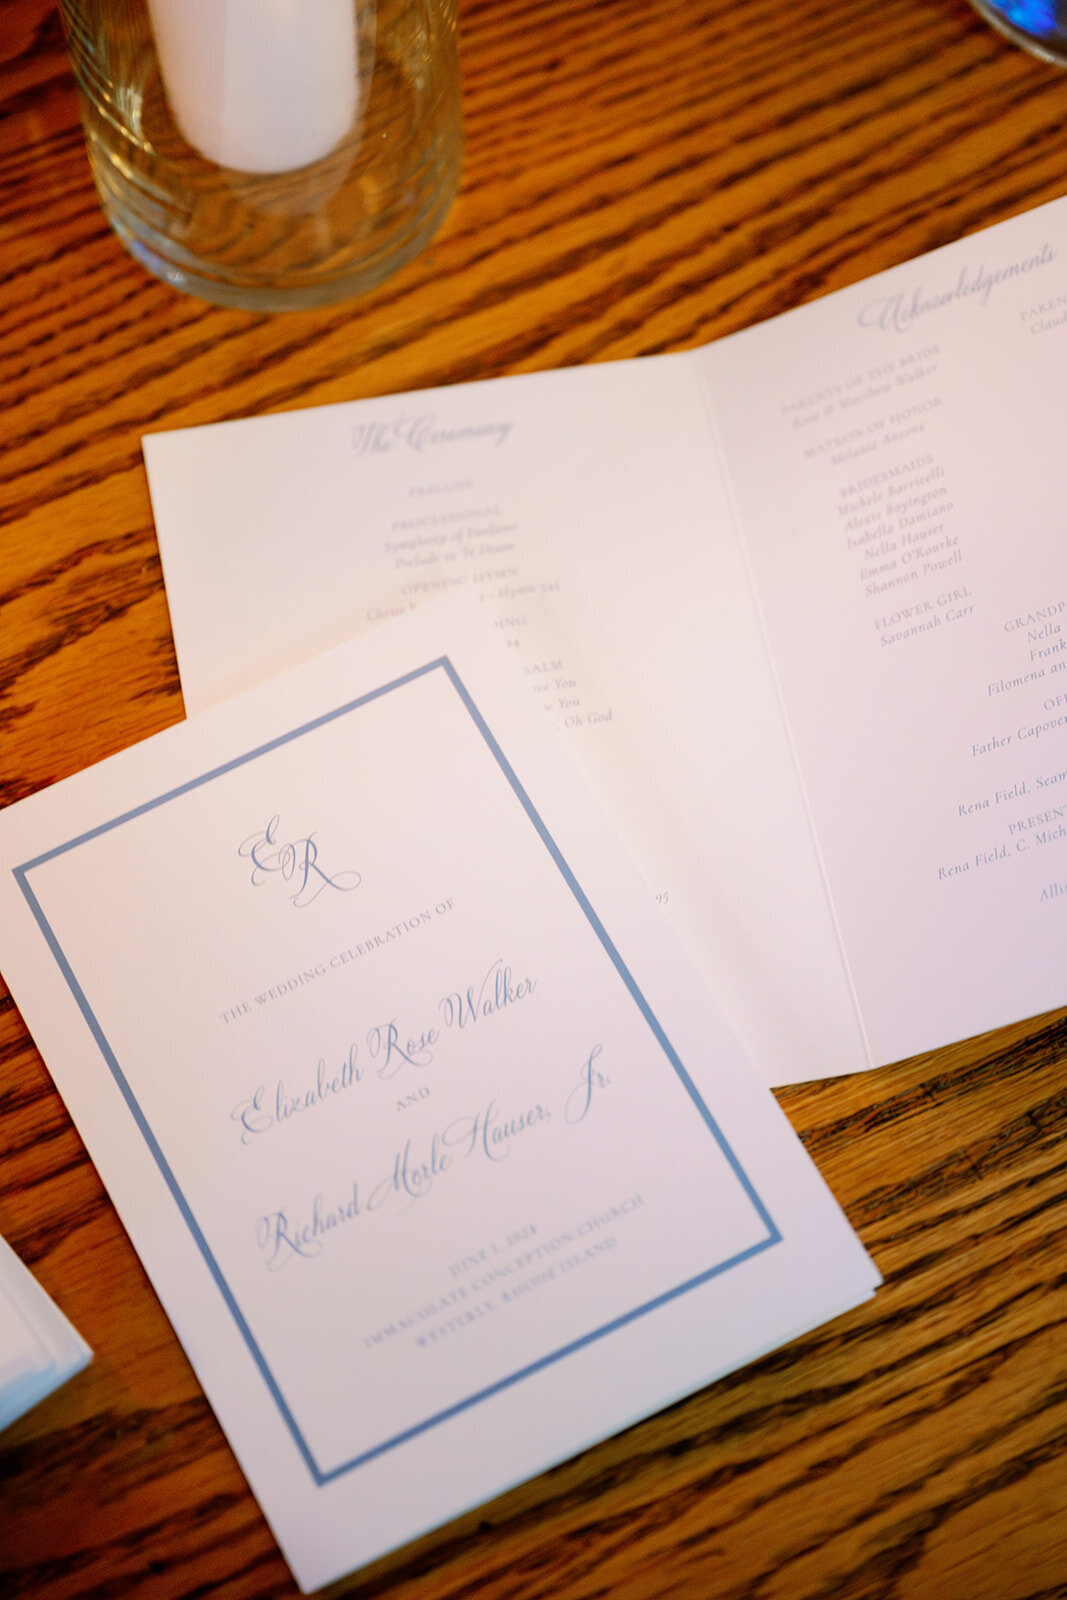 The Ceremony
PRELUDE
PROCESSIONAL
Symphony of Fanfares
Prelude to Te Deum
OPENING HYMN
Christ - Hymn 545
Oh God
95
Acknowledgements
PARENTS OF THE BRIDE
Rose & Matthew Walker
MATRON OF HONOR
Melanie
BRIDESMAIDS
Michele Barricelli
Alexis Boyington
Isabella Damiano
Nella Hauser
Emma O'Rourke
Shannon Powell
FLOWER GIRL
Savannah Carr
Nella
Filomena an
Father
Rena Field,
Rena Field, C.
ER
THE WEDDING CELEBRATION OF
Elizabeth Rose Walker
AND
Richard Morle Hauser, Jr.
JUNE 1, 2024
IMMACULATE CONCEPTION CHURCH
WESTERLY, RHODE ISLAND